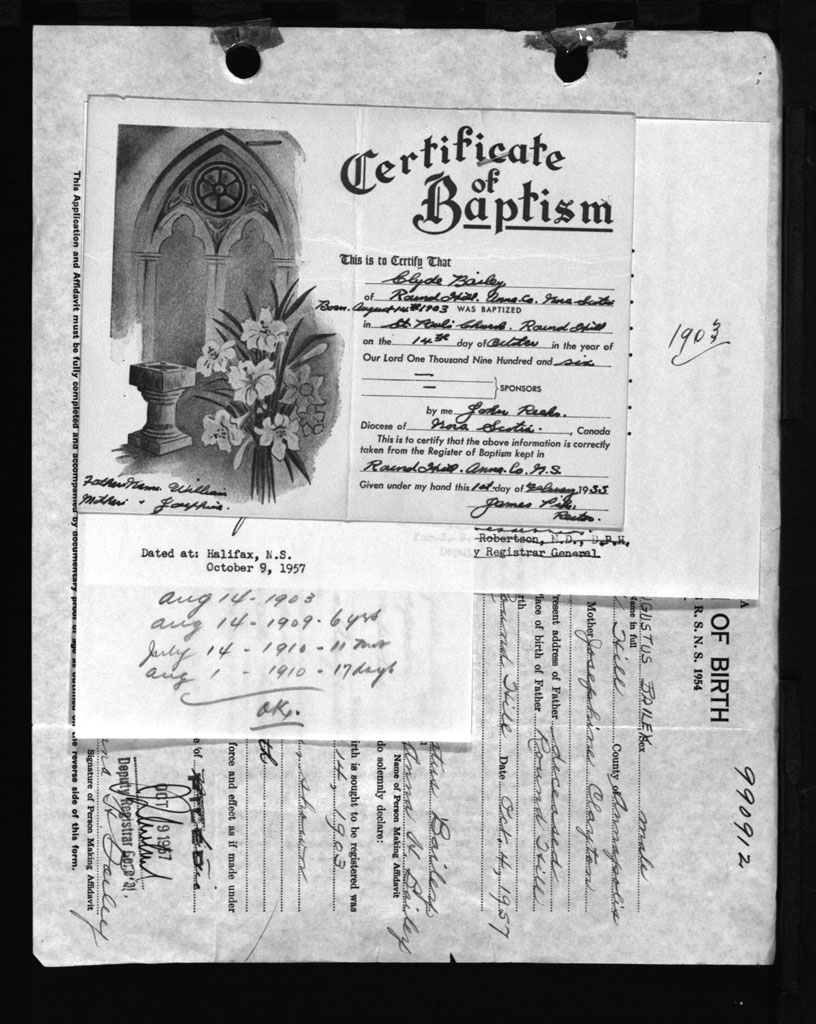 Certificate
of
Baptism
This is to Certify That
Clyde Bailey
of Round Hill. Anna. Co. Nova Scotia
Born. August 14th 1903 WAS BAPTIZED
in St. Paul's Church. Round Hill
on the 14th day of October in the year of
Our Lord One Thousand Nine Hundred and six
SPONSORS
by me John Reeks.
Diocese of Nova Scotia. , Canada
This is to certify that the above information is correctly
taken from the Register of Baptism kept in
Round Hill. Anna. Co. N.S.
Given under my hand this 1st day of February 1955
James
Rector.
Father Name. William
Mother " Josephine.
1903
Robertson, M.D., D.P.H.
y Registrar General
Dated at: Halifax, N.S.
October 9, 1957
Aug 14 - 1903
Aug 14 - 1909 - 6 yrs
July 14 - 1910 - 11 mos
Aug 1 - 1910 - 17 days
OK.
990912
OF BIRTH
R. S. N. S. 1954
GUSTUS BAILEY Sex male
Name in full
Hill County of Annapolis
Mother Josephine Clayton
resent address of Father deceased
lace of birth of Father Round Hill
ound Hill Date Oct. 4, 1957
stus Bailey
Anna H Bailey
Name of Person Making Affidavit
do solemnly declare:
irth is sought to be registered was
14, 1903
shown
th
force and effect as if made under
e of
OCT 9 1957
Deputy Registrar Gen'al.
na H Bailey
Signature of Person Making Affidavit
This Application and Affidavit must be fully completed and accompanied by documentary proof of age as outlined on the reverse side of this form.